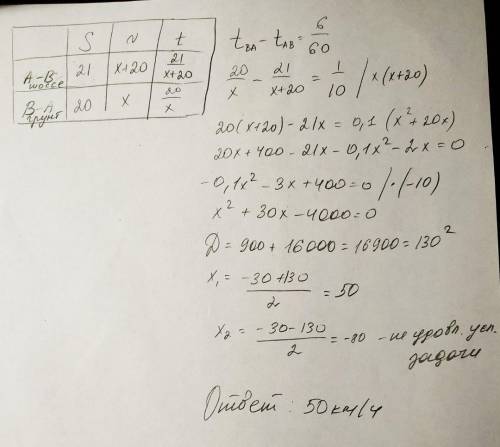 S v t
A-B шоссе 21 x+20 21/(x+20)
B-A грунт 20 x 20/x
t_BA - t_AB = 6/60
20/x - 21/(x+20) = 1/10 | x(x+20)
20(x+20) - 21x = 0,1 (x² + 20x)
20x + 400 - 21x - 0,1x² - 2x = 0
-0,1x² - 3x + 400 = 0 | · (-10)
x² + 30x - 4000 = 0
D = 900 + 16000 = 16900 = 130²
x₁ = (-30+130)/2 = 50
x₂ = (-30-130)/2 = -80 - не удовл. усл. задачи
Ответ: 50 км/ч